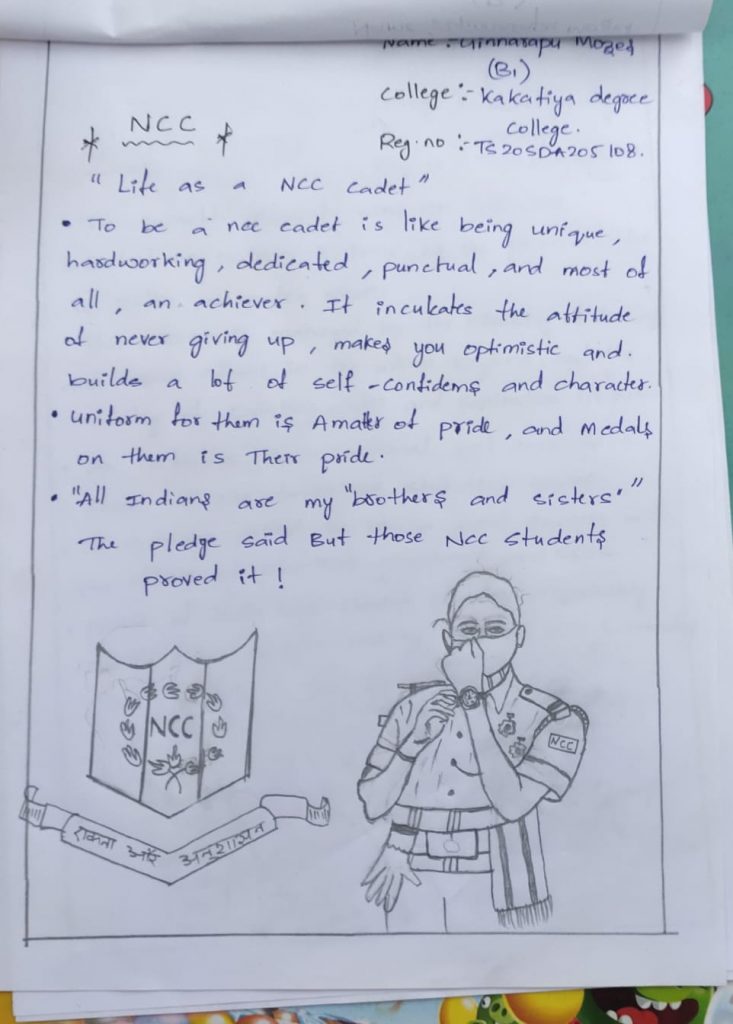 Name :- Ginnarapu Moges
(B1)
College :- Kakatiya degree
College.
Reg.no :- TS20SDA205108.
* NCC *
"Life as a NCC cadet"
• To be a ncc cadet is like being unique,
hardworking, dedicated, punctual, and most of
all, an achiever. It inculcates the attitude
of never giving up, makes you optimistic and.
builds a lot of self-confidens and character.
• uniform for them is A matter of pride, and Medals
on them is Their pride.
• "All Indians are my "brothers and sisters."
The pledge said But those NCC Students
proved it!
NCC
NCC
एकता और अनुशासन